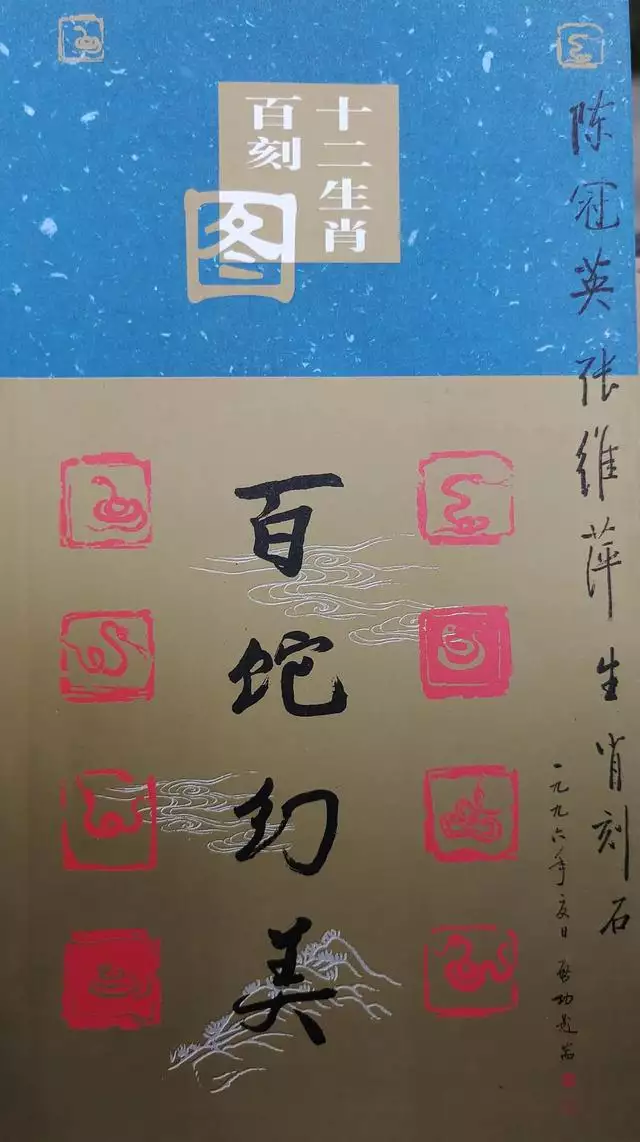 陈冠英 张维萍 生肖刻石
一九九六年夏日 启功题端
十二生肖
百刻
图
百蛇幻美